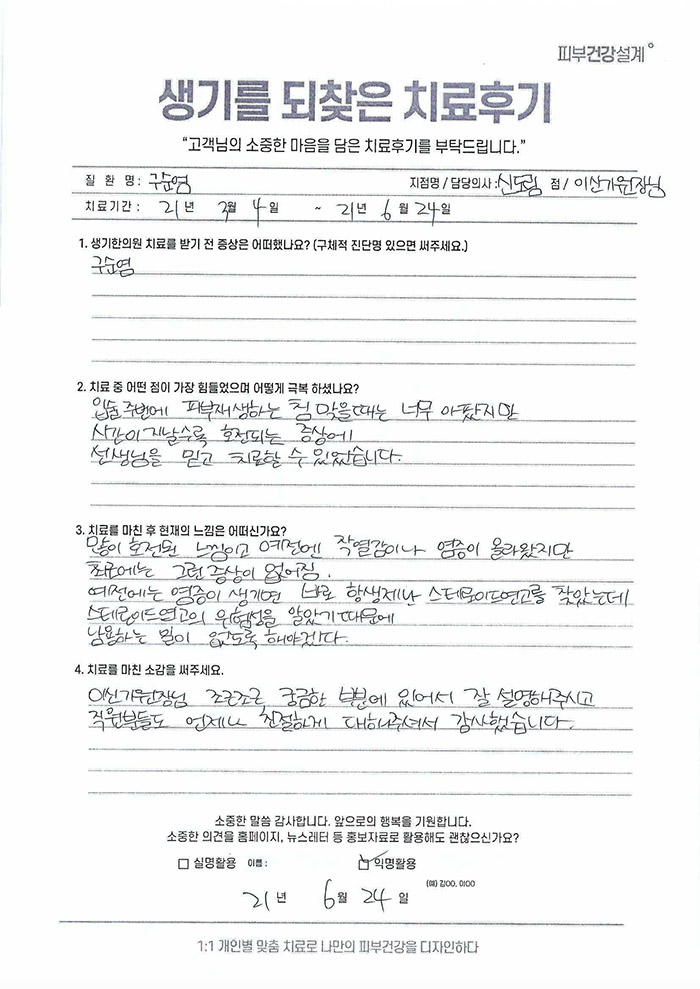 피부건강설계
생기를 되찾은 치료후기
“고객님의 소중한 마음을 담은 치료후기를 부탁드립니다.”
질 환 명 : 구순염 지점명 / 담당의사 : 신도림 점 / 이신기원장님
치료기간 : 21년 3월 4일 ~ 21년 6월 24일
1. 생기한의원 치료를 받기 전 증상은 어떠했나요? (구체적 진단명 있으면 써주세요.)
구순염
2. 치료 중 어떤 점이 가장 힘들었으며 어떻게 극복 하셨나요?
입술 주변에 피부재생하는 침 맞을때는 너무 아팠지만
시간이 지날수록 호전되는 증상에
선생님을 믿고 치료할 수 있었습니다.
3. 치료를 마친 후 현재의 느낌은 어떠신가요?
많이 호전된 느낌이고 예전엔 작열감이나 염증이 올라왔지만
최근에는 그런 증상이 없어짐.
예전에는 염증이 생기면 바로 항생제나 스테로이드연고를 찾았는데
스테로이드연고의 위험성을 알았기 때문에
남용하는 일이 없도록 해야겠다.
4. 치료를 마친 소감을 써주세요.
이신기원장님 조근조근 궁금한 부분에 있어서 잘 설명해주시고
직원분들도 언제나 친절하게 대해주셔서 감사했습니다.
소중한 말씀 감사합니다. 앞으로의 행복을 기원합니다.
소중한 의견을 홈페이지, 뉴스레터 등 홍보자료로 활용해도 괜찮으신가요?
실명활용 이름 : 익명활용
(예) 김OO, 이OO
21년 6월 24일
1:1 개인별 맞춤 치료로 나만의 피부건강을 디자인하다